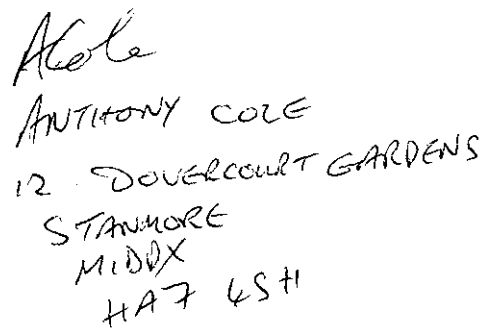 ACole
ANTHONY COLE
12 DOVERCOURT GARDENS
STANMORE
MIDDX
HA7 4SH